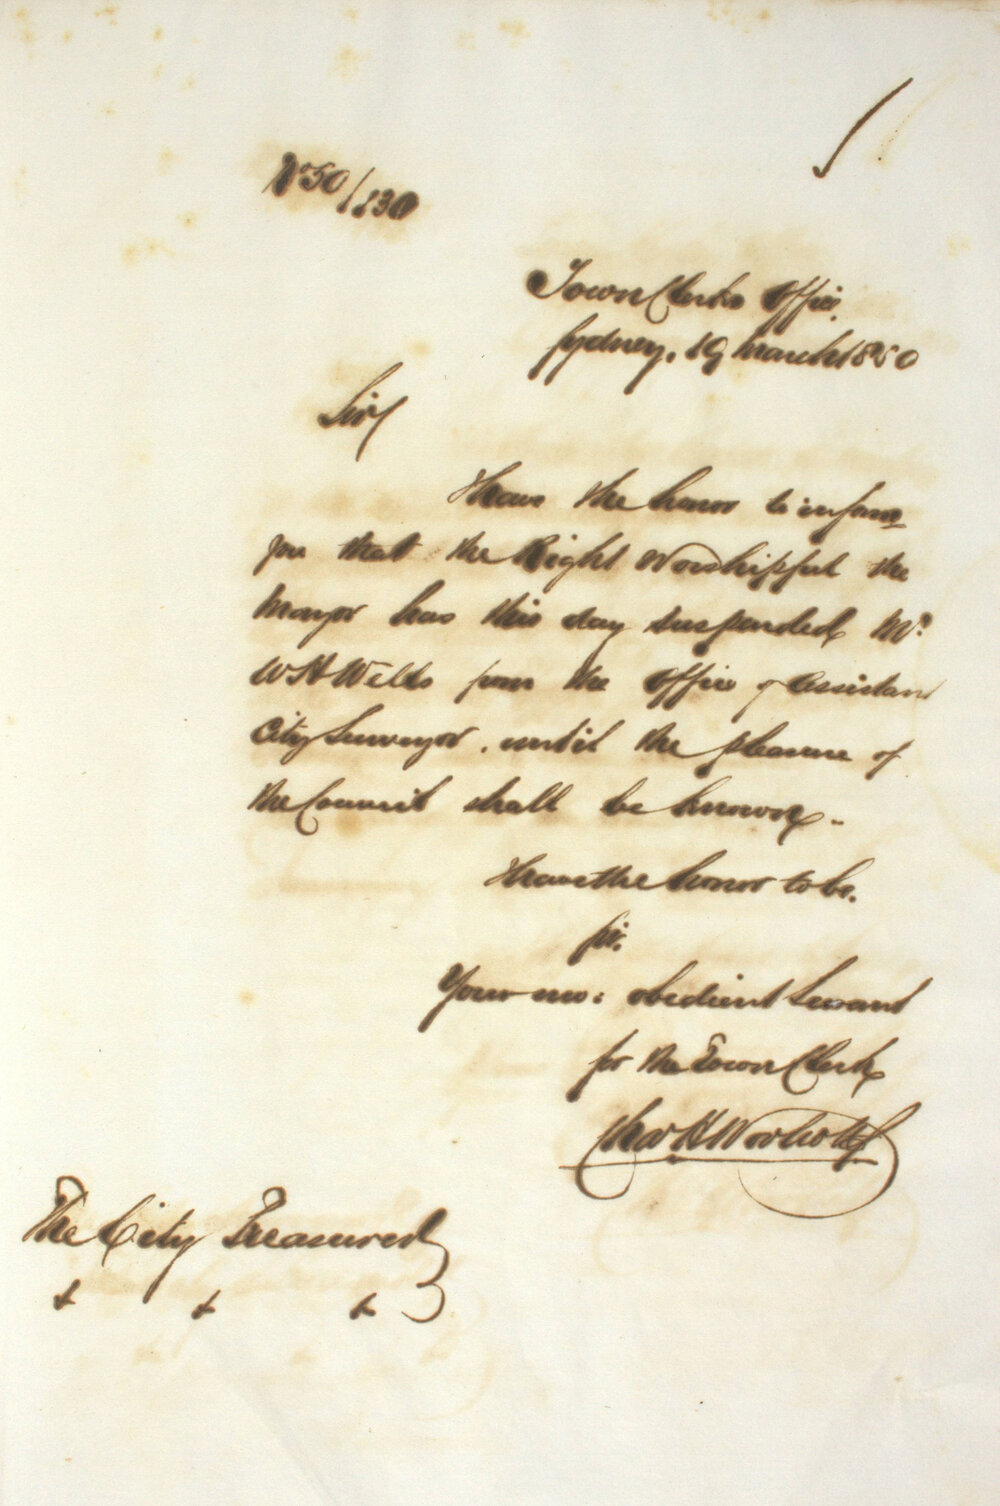 No 50/130
Town Clerks Office.
Sydney, 19 March 1850
Sir
I have the honor to inform
you that the Right Worshipful the
Mayor has this day suspended Mr.
W H Wells from the Office of Assistant
City Surveyor, until the pleasure of
the Council shall be known.-
I have the honor to be.
Sir.
Your mo: obedient Servant
for the Town Clerk
Chas H Woolcott
The City Treasurer